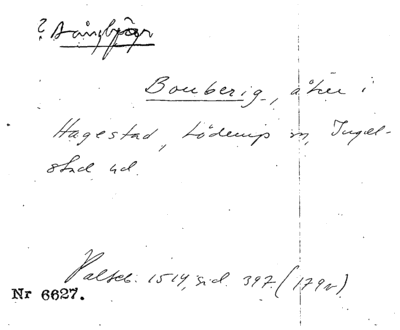 ? Bångbjär
Bonberig, åker i
Hagestad, Löderup sn, Ingel-
stad hd.
Palteb. 1514, sid. 397 (179v)
Nr 6627.